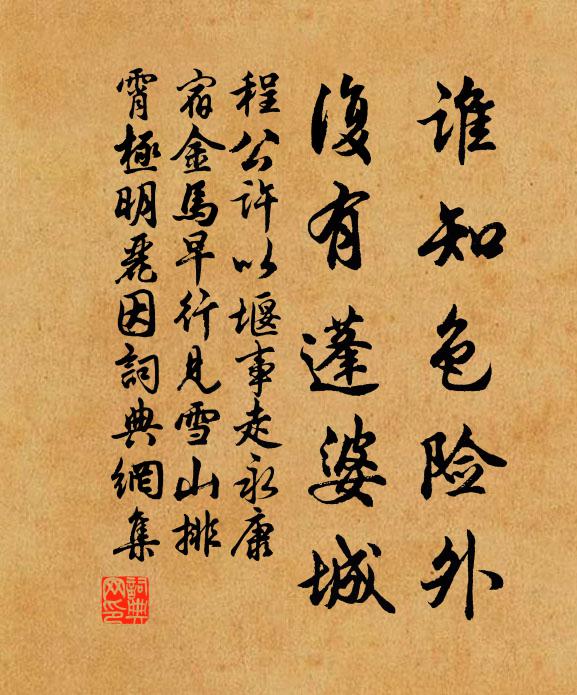 谁知色险外
复有蓬婆城
程公许以堰事走永康
宿金马早行见雪山排
霄极明丽因词典网集
词典网印